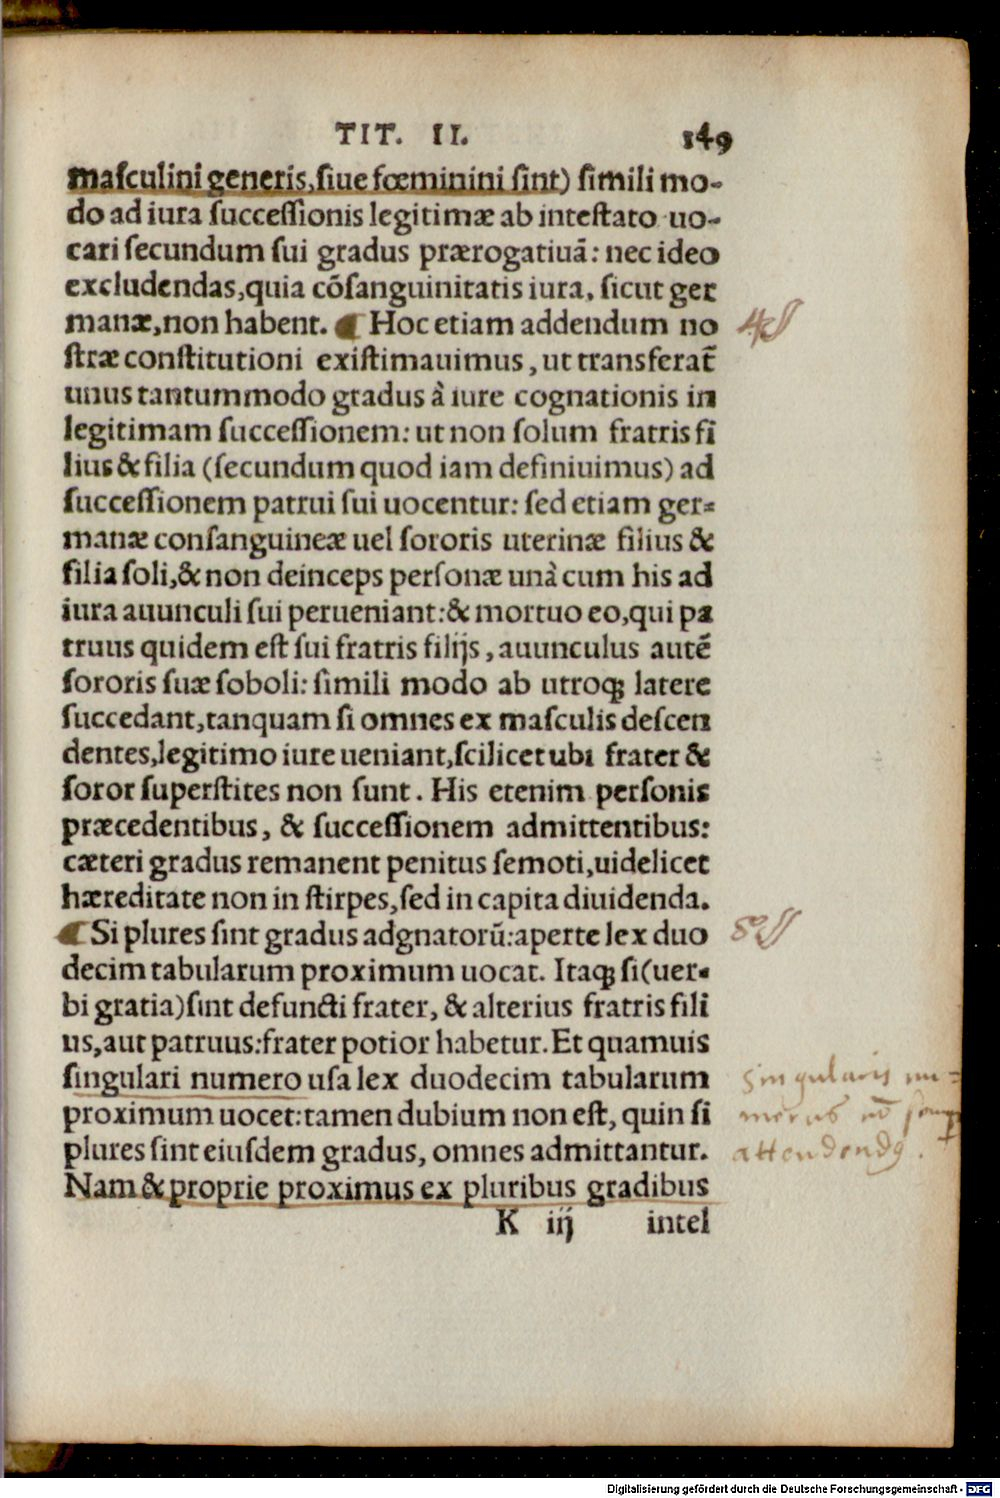 TIT. II. 149
masculini generis, siue fœminini sint) simili mo-
do ad iura successionis legitimæ ab intestato uo-
cari secundum sui gradus prærogatiuã: nec ideo
excludendas, quia cõsanguinitatis iura, sicut ger
manæ, non habent. ¶ Hoc etiam addendum no
stræ constitutioni existimauimus, ut transferat̃
unus tantummodo gradus à iure cognationis in
legitimam successionem: ut non solum fratris fi
lius & filia (secundum quod iam definiuimus) ad
successionem patrui sui uocentur: sed etiam ger-
manæ consanguineæ uel sororis uterinæ filius &
filia soli, & non deinceps personæ unà cum his ad
iura auunculi sui perueniant: & mortuo eo, qui pa
truus quidem est sui fratris filijs, auunculus autẽ
sororis suæ soboli: simili modo ab utroq; latere
succedant, tanquam si omnes ex masculis descen
dentes, legitimo iure ueniant, scilicet ubi frater &
soror superstites non sunt. His etenim personis
præcedentibus, & successionem admittentibus:
cæteri gradus remanent penitus semoti, uidelicet
hæreditate non in stirpes, sed in capita diuidenda.
¶ Si plures sint gradus adgnatorũ: aperte lex duo
decim tabularum proximum uocat. Itaq; si (uer-
bi gratia) sint defuncti frater, & alterius fratris fili
us, aut patruus: frater potior habetur. Et quamuis
singulari numero usa lex duodecim tabularum
proximum uocet: tamen dubium non est, quin si
plures sint eiusdem gradus, omnes admittantur.
Nam & proprie proximus ex pluribus gradibus
K iij intel
singularis nu=
merus
attendendus.
Digitalisierung gefördert durch die Deutsche Forschungsgemeinschaft - DFG